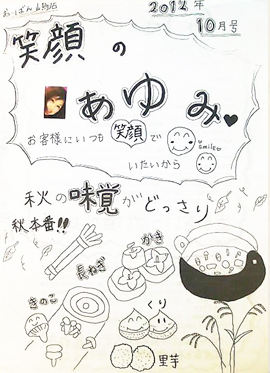 2012年
10月号
笑顔の
あゆみ
お客様にいつも笑顔で
smile
いたいから
秋の味覚がどっさり
秋本番!!
長ねぎ
かき
きのこ
くり
里芋